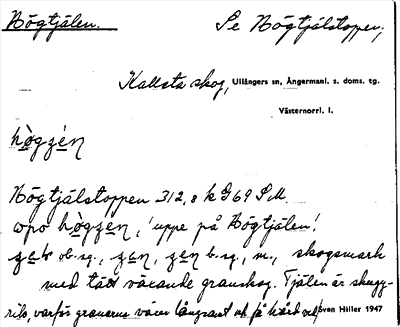 Högtjälen. Se Högtjälstoppen,
Kallsta skog, Ullångers sn, Ångermanl. s. doms. tg.
Västernorrl. l.
hògzén
Högtjälstoppen 312,8 k G 69 S.M.
opo hògzen, 'uppe på Högtjälen'.
ob. sg., zen, zen b. sg., m., skogsmark
med tätt växande granskog. Tjälen är skugg-
rik, varför granarna växer långsamt och få hård ved. Sven Hiller 1947